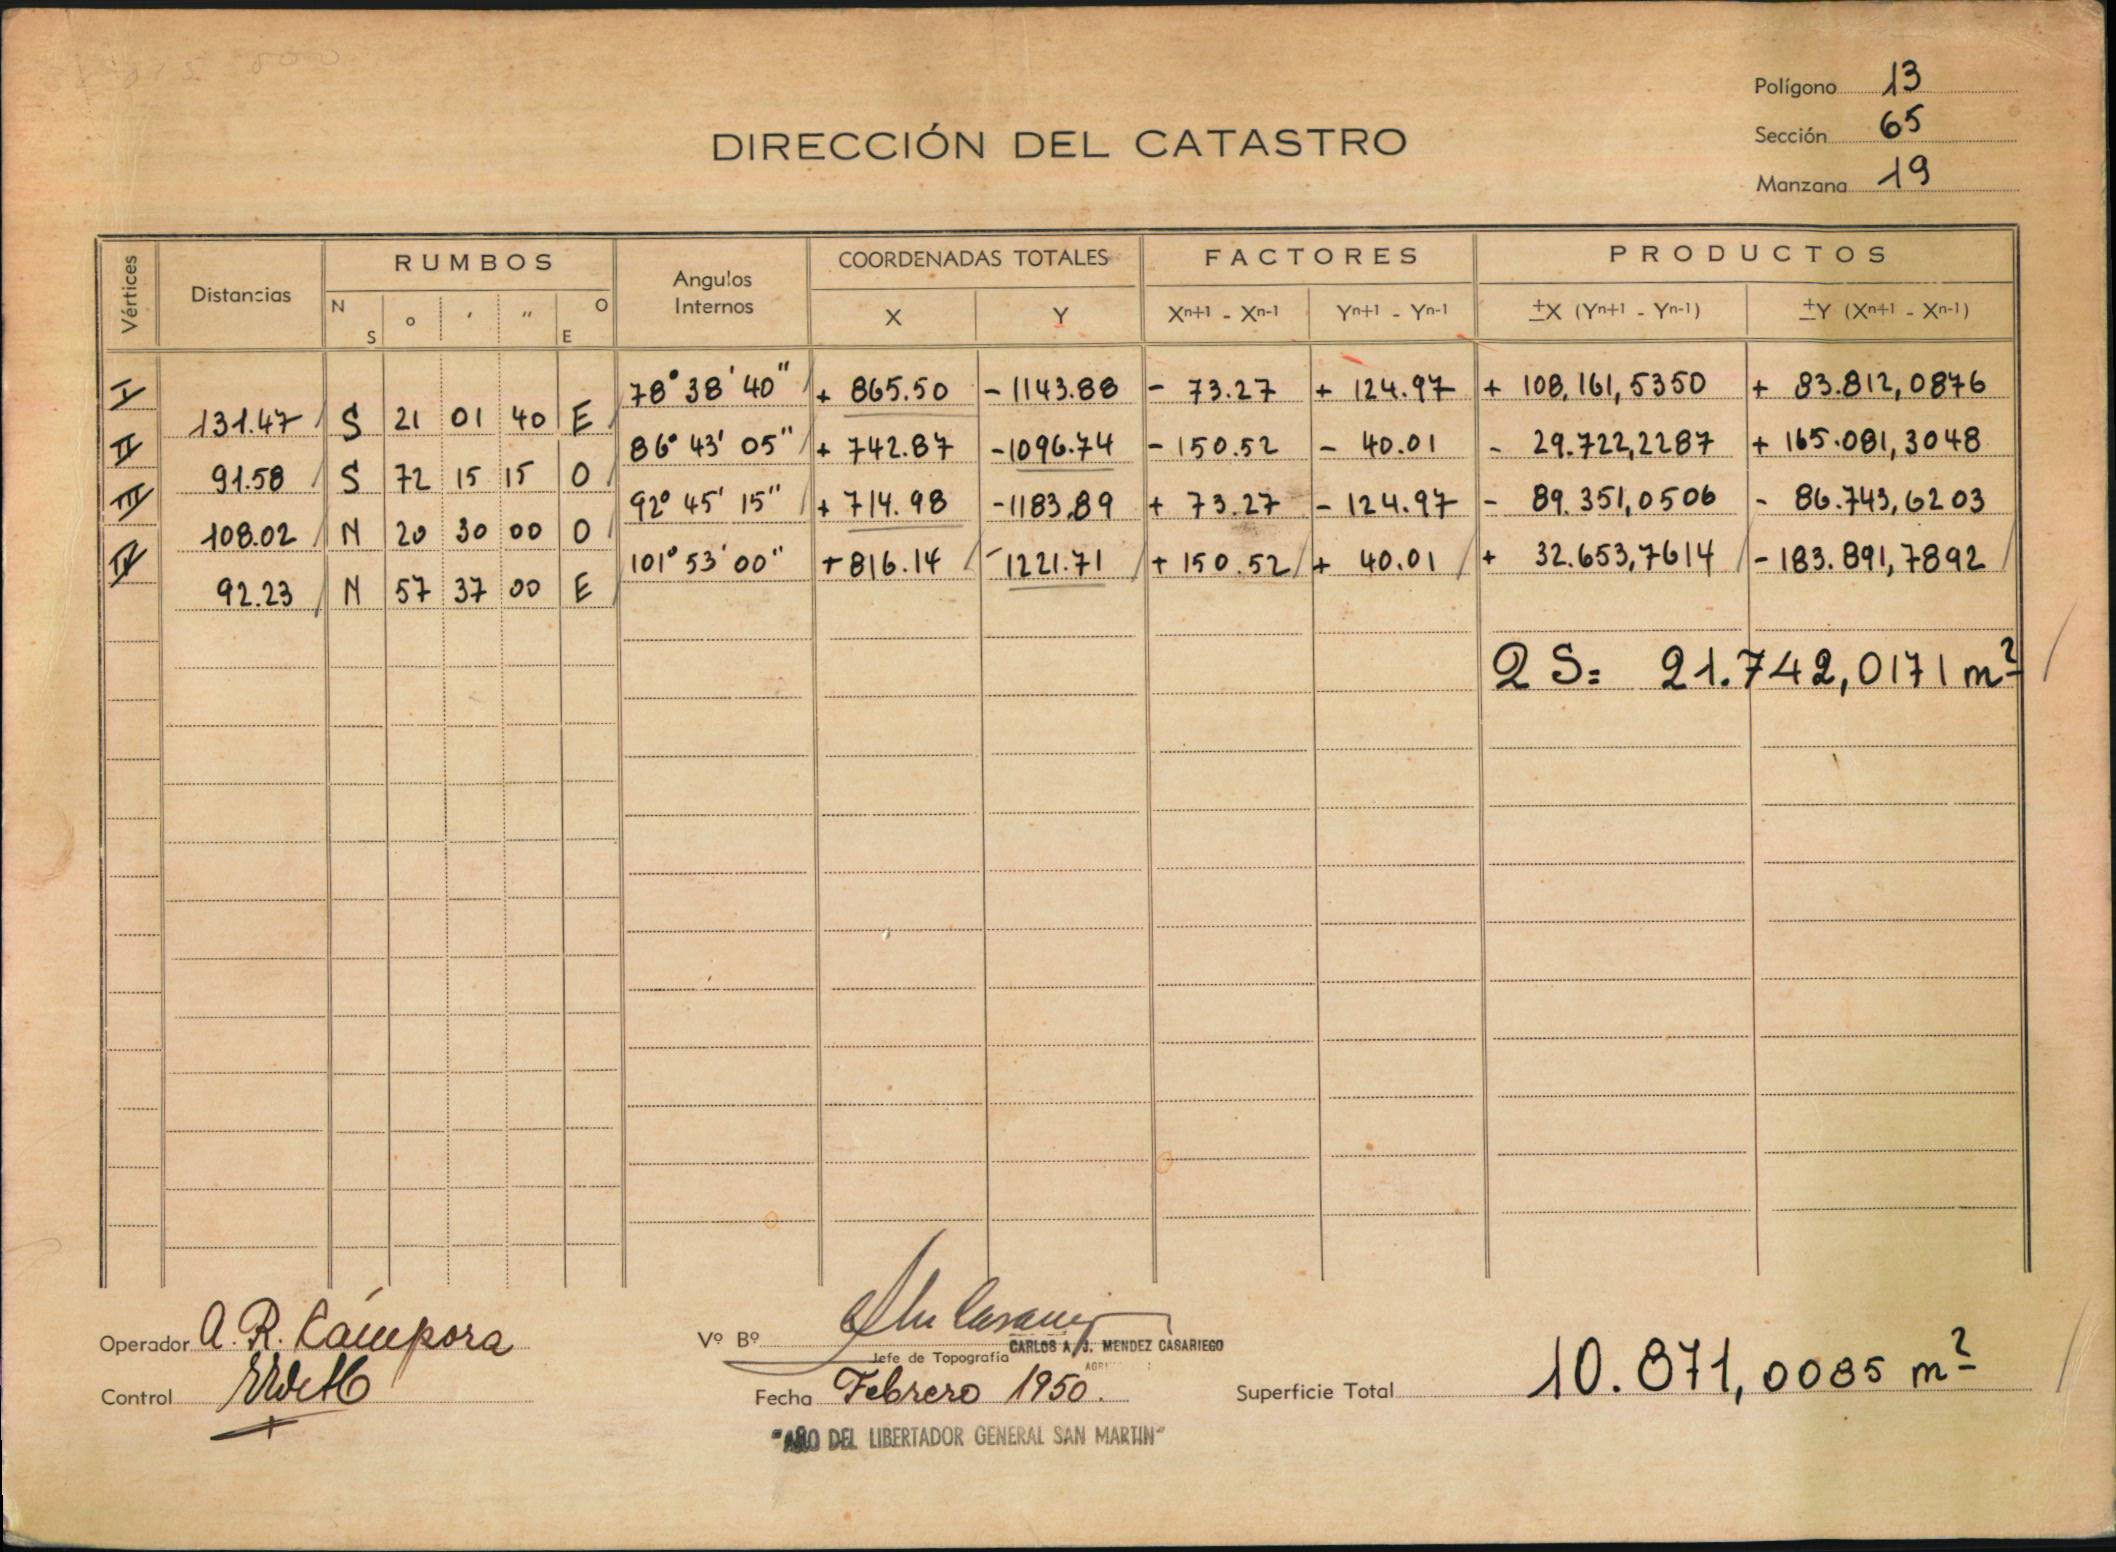 Polígono 13
DIRECCIÓN DEL CATASTRO
Sección 65
Manzana 19
Vértices Distancias RUMBOS Angulos Internos COORDENADAS TOTALES FACTORES PRODUCTOS
N S o ' " O E X Y Xn+1 - Xn-1 Yn+1 - Yn-1 ±X (Yn+1 - Yn-1) ±Y (Xn+1 - Xn-1)
I 78° 38' 40" + 865.50 - 1143.88 - 73.27 + 124.97 + 108,161,5350 + 83.812,0876
131.47 S 21 01 40 E
II 86° 43' 05" + 742.87 - 1096.74 - 150.52 - 40.01 - 29.722,2287 + 165.081,3048
91.58 S 72 15 15 O
III 92° 45' 15" + 714.98 - 1183.89 + 73.27 - 124.97 - 89.351,0506 - 86.743,6203
108.02 N 20 30 00 O
IV 101° 53' 00" + 816.14 - 1221.71 + 150.52 + 40.01 + 32.653,7614 - 183.891,7892
92.23 N 57 37 00 E
2 S = 21.742,0171 m2
Operador A. R. Cámpora
Vº Bº CARLOS A. J. MENDEZ CASARIEGO
Jefe de Topografía
Control
Fecha Febrero 1950.
Superficie Total 10.871,0085 m2
"AÑO DEL LIBERTADOR GENERAL SAN MARTIN"